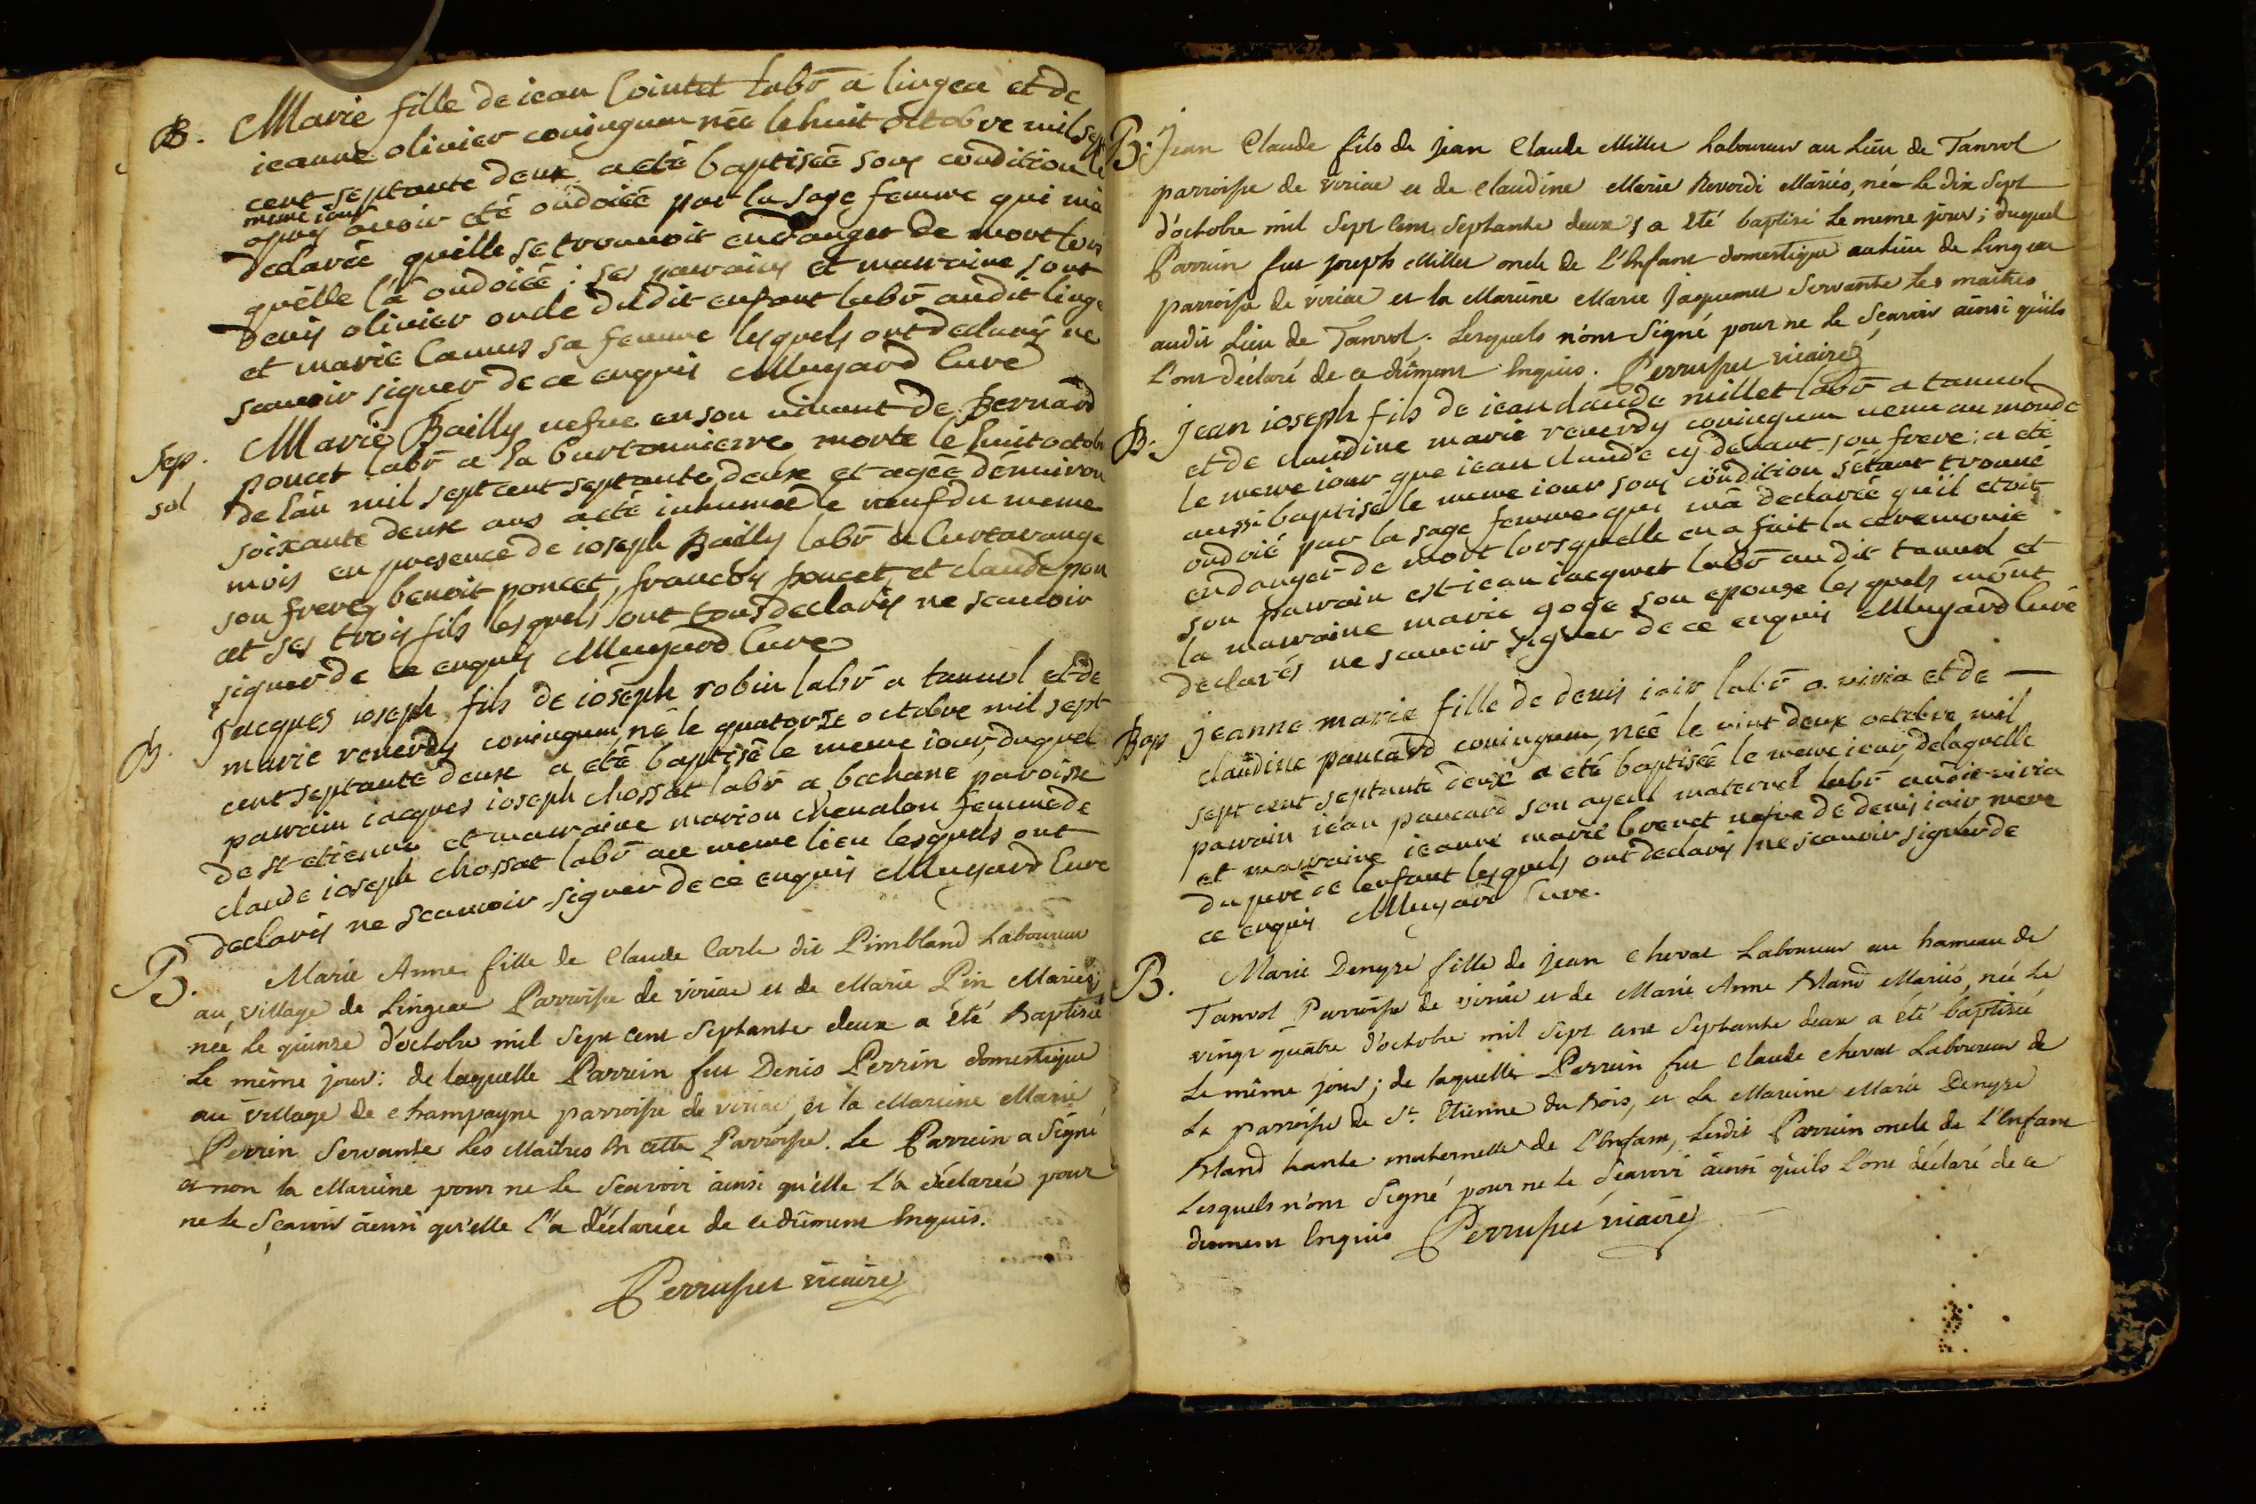 B. Marie fille de iean Cointet labō a lingea et de
ieanne olivier coniugum née le huit octobre mil sept
cent septante deux a eté baptisée sous condition le
meme iour
apres avoir eté ondoiée par la sage femme qui m'a
declarée qu'elle se trouvoit en danger de mort lors
qu'elle l'a ondoiée : ses parains et marraine sont
denis olivier oncle dudit enfant labō audit linge
et marie Camus sa femme lesquels ont declarés ne
scavoir signer de ce enquis Muyard Curé
Sep. Marie Bailly vefve en son vivant de Bernard
sol poncet labō a la burtonnierre morte le huit octobr
de l'an mil sept cent septante deux et agée d'environ
soixante deux ans a eté inhumée le neuf du meme
mois en presence de ioseph Bailly labō a Curtarange
son frere, benoit poncet, francois poncet, et claude pon
cet ses trois fils lesquels ont tous declarés ne scavoir
signer de ce enquis Muyard Curé
B. Jacques ioseph fils de ioseph robin labō a tanvol et de
marie reverdy coniugum, né le quatorze octobre mil sept
cent septante deux a eté baptisé le meme iour, duquel
parrain iacques ioseph chossat labō a bechane paroisse
de st etienne et marraine marion chevalon femme de
claude ioseph chossat labō au meme lieu lesquels ont
declarés ne scavoir signer de ce enquis Muyard Curé
B. Marie Anne fille de Claude Carle dit Pimbland Laboureur
au village de Lingeat Parroisse de viriat et de Marie Pin Mariés,
née le quinze d'octobre mil sept cent septante deux a été Baptisée
Le même jour : de laquelle Parrein fut Denis Perrin domestique
au village de champagne parroisse de viriat, et la Marreine Marie
Perrin Servante Les Maîtres En cette Parroisse. Le Parrein a Signé
et non la Marreine pour ne le Sçavoir ainsi qu'elle L'a déclarée pour
ne le Sçavoir ainsi qu'elle l'a déclarée de ce dûment Enquis.
Perrusset vicaire
B. Jean Claude fils de Jean Claude Millet Laboureur au Lieu de Tanvol
parroisse de viriat et de Claudine Marie Reverdi Mariés, né le dix Sept
d'octobre mil Sept Cent Septante deux, a été baptisé Le meme jour ; duquel
Parrein fut joseph Millet oncle de L'Enfant domestique au Lieu de Lingeat
parroisse de viriat et la Marreine Marie Jaquemet Servante Les maîtres
audit Lieu de Tanvol. Lesquels n'ont Signé pour ne le Sçavoir ainsi qu'ils
L'ont déclaré de ce dûment Enquis. Perrusset vicaire
B. Jean ioseph fils de iean claude millet labō a tanvol
et de claudine marie reverdy coniugum venu au monde
le meme iour que iean claude cy devant son frere ; a eté
aussi baptisé le meme iour sous condition s'etant trouvé
ondoié par la sage femme qui m'a declarée qu'il etoit
en danger de mort lorsqu'elle en a fait la ceremonie
son parrain est iean iacquet labō audit tanvol et
la marraine marie goge son epouse lesquels m'ont
declarés ne scavoir signer de ce enquis Muyard Curé
Bap Jeanne marie fille de denis ioir labō a viria et de
claudine pancard coniugum, née le vint deux octobre mil
sept cent septante deux a eté baptisée le meme iour, de laquelle
parrain iean pancard son ayeul maternel labō audit viria
et marraine ieanne marie brevet vefve de denis ioir mere
du pere de l'enfant lesquels ont declarés ne scavoir signer de
ce enquis Muyard Curé.
B. Marie Denyse fille de Jean Chevat Laboureur au hameau de
Tanvol Parroisse de viriat et de Marie Anne Bland Mariés, née Le
vingt quatre d'octobre mil Sept Cent Septante deux a été baptisée
Le même jour ; de laquelle Parrein fut Claude Chevat Laboureur de
La parroisse de St. Etienne du Bois, et La Marreine Marie Denyse
Bland tante maternelle de L'Enfant, Ledit Parrein oncle de L'Enfant
Lesquels n'ont Signé pour ne le Sçavoir ainsi qu'ils L'ont déclaré de ce
dûment Enquis Perrusset vicaire